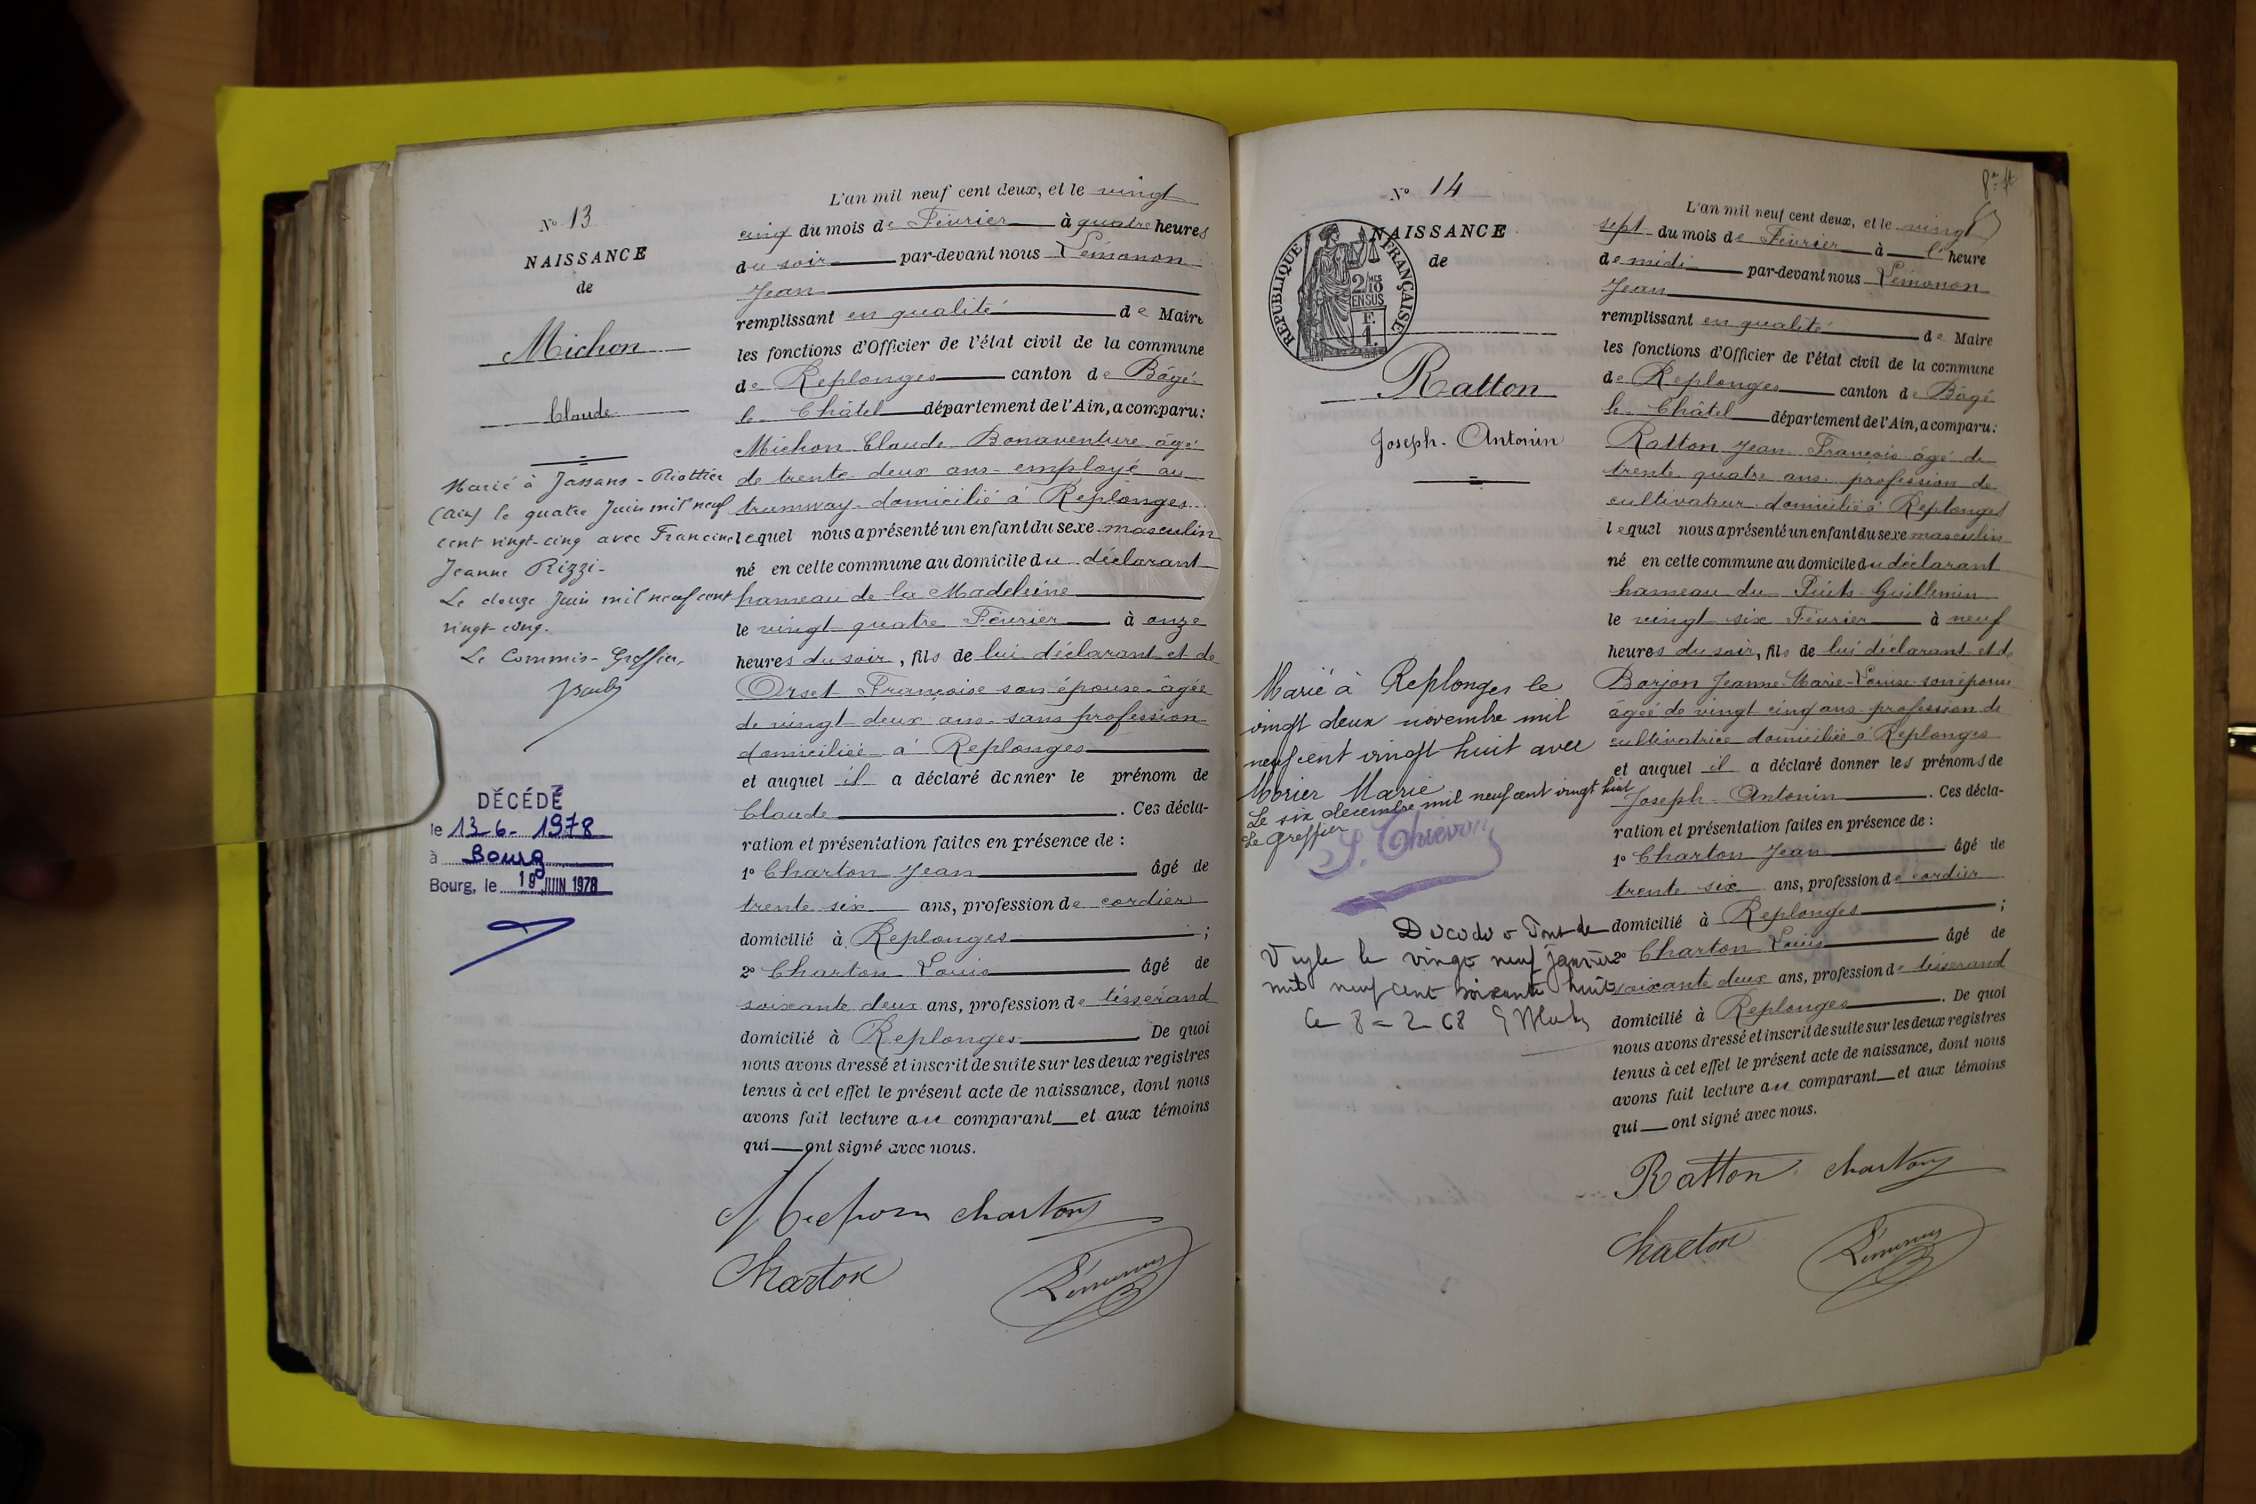 N° 13
NAISSANCE
de
Michon
Claude
Marié à Jassans-Riottier
(Ain) le quatre Juin mil neuf
cent vingt-cinq avec Francine
Jeanne Rizzi-
Le douze Juin mil neuf cent
vingt-cinq.
Le Commis-Greffier,
DÉCÉDÉ
le 13-6-1978
à Bourg
Bourg, le 19 JUIN 1978
L'an mil neuf cent deux, et le vingt
cinq du mois de Février à quatre heures
du soir par-devant nous Lémonon
Jean
remplissant en qualité de Maire
les fonctions d'Officier de l'état civil de la commune
de Replonges canton de Bâgé
le Châtel département de l'Ain, a comparu:
Michon Claude Bonaventure âgé
de trente deux ans employé au
tramway domicilié à Replonges
lequel nous a présenté un enfant du sexe masculin
né en cette commune au domicile du déclarant
hameau de la Madeleine
le vingt quatre Février à onze
heures du soir, fils de lui déclarant et de
Orset Françoise son épouse âgée
de vingt deux ans sans profession
domiciliée à Replonges
et auquel il a déclaré donner le prénom de
Claude. Ces décla-
ration et présentation faites en présence de :
1° Charton Jean âgé de
trente six ans, profession de cordier
domicilié à Replonges ;
2° Charton Louis âgé de
soixante deux ans, profession de tisserand
domicilié à Replonges. De quoi
nous avons dressé et inscrit de suite sur les deux registres
tenus à cet effet le présent acte de naissance, dont nous
avons fait lecture au comparant et aux témoins
qui ont signé avec nous.
Michon Charton
Charton Lémonon
8e ft
N° 14
NAISSANCE
de
RÉPUBLIQUE FRANÇAISE
2/10 EN SUS
F. 1.
Ratton
Joseph-Antonin
Marié à Replonges le
vingt deux novembre mil
neuf cent vingt huit avec
Morier Marie
Le six décembre mil neuf cent vingt huit
Le Greffier
Décédé à Pont de
Veyle le vingt neuf janvier
mil neuf cent soixante huit
Ce 8-2-68
L'an mil neuf cent deux, et le vingt
sept du mois de Février à l' heure
de midi par-devant nous Lémonon
Jean
remplissant en qualité de Maire
les fonctions d'Officier de l'état civil de la commune
de Replonges canton de Bâgé
le Châtel département de l'Ain, a comparu:
Ratton Jean François âgé de
trente quatre ans profession de
cultivateur domicilié à Replonges
lequel nous a présenté un enfant du sexe masculin
né en cette commune au domicile du déclarant
hameau du Puits Guillemin
le vingt six Février à neuf
heures du soir, fils de lui déclarant et de
Borjon Jeanne-Marie-Louise son épouse
âgée de vingt cinq ans profession de
cultivatrice domiciliée à Replonges
et auquel il a déclaré donner les prénoms de
Joseph-Antonin. Ces décla-
ration et présentation faites en présence de :
1° Charton Jean âgé de
trente six ans, profession de cordier
domicilié à Replonges ;
2° Charton Louis âgé de
soixante deux ans, profession de tisserand
domicilié à Replonges. De quoi
nous avons dressé et inscrit de suite sur les deux registres
tenus à cet effet le présent acte de naissance, dont nous
avons fait lecture au comparant et aux témoins
qui ont signé avec nous.
Ratton Charton
Charton Lémonon